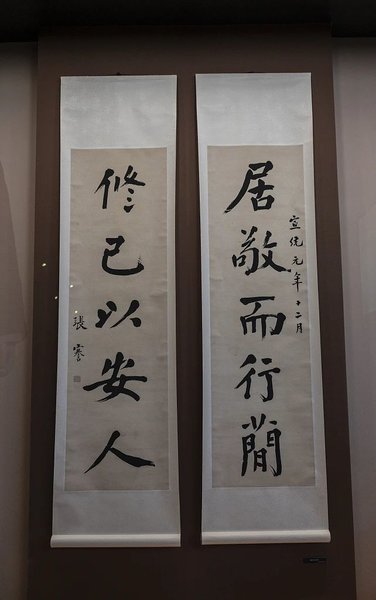 居敬而行簡
宣統元年十二月
修己以安人
張謇